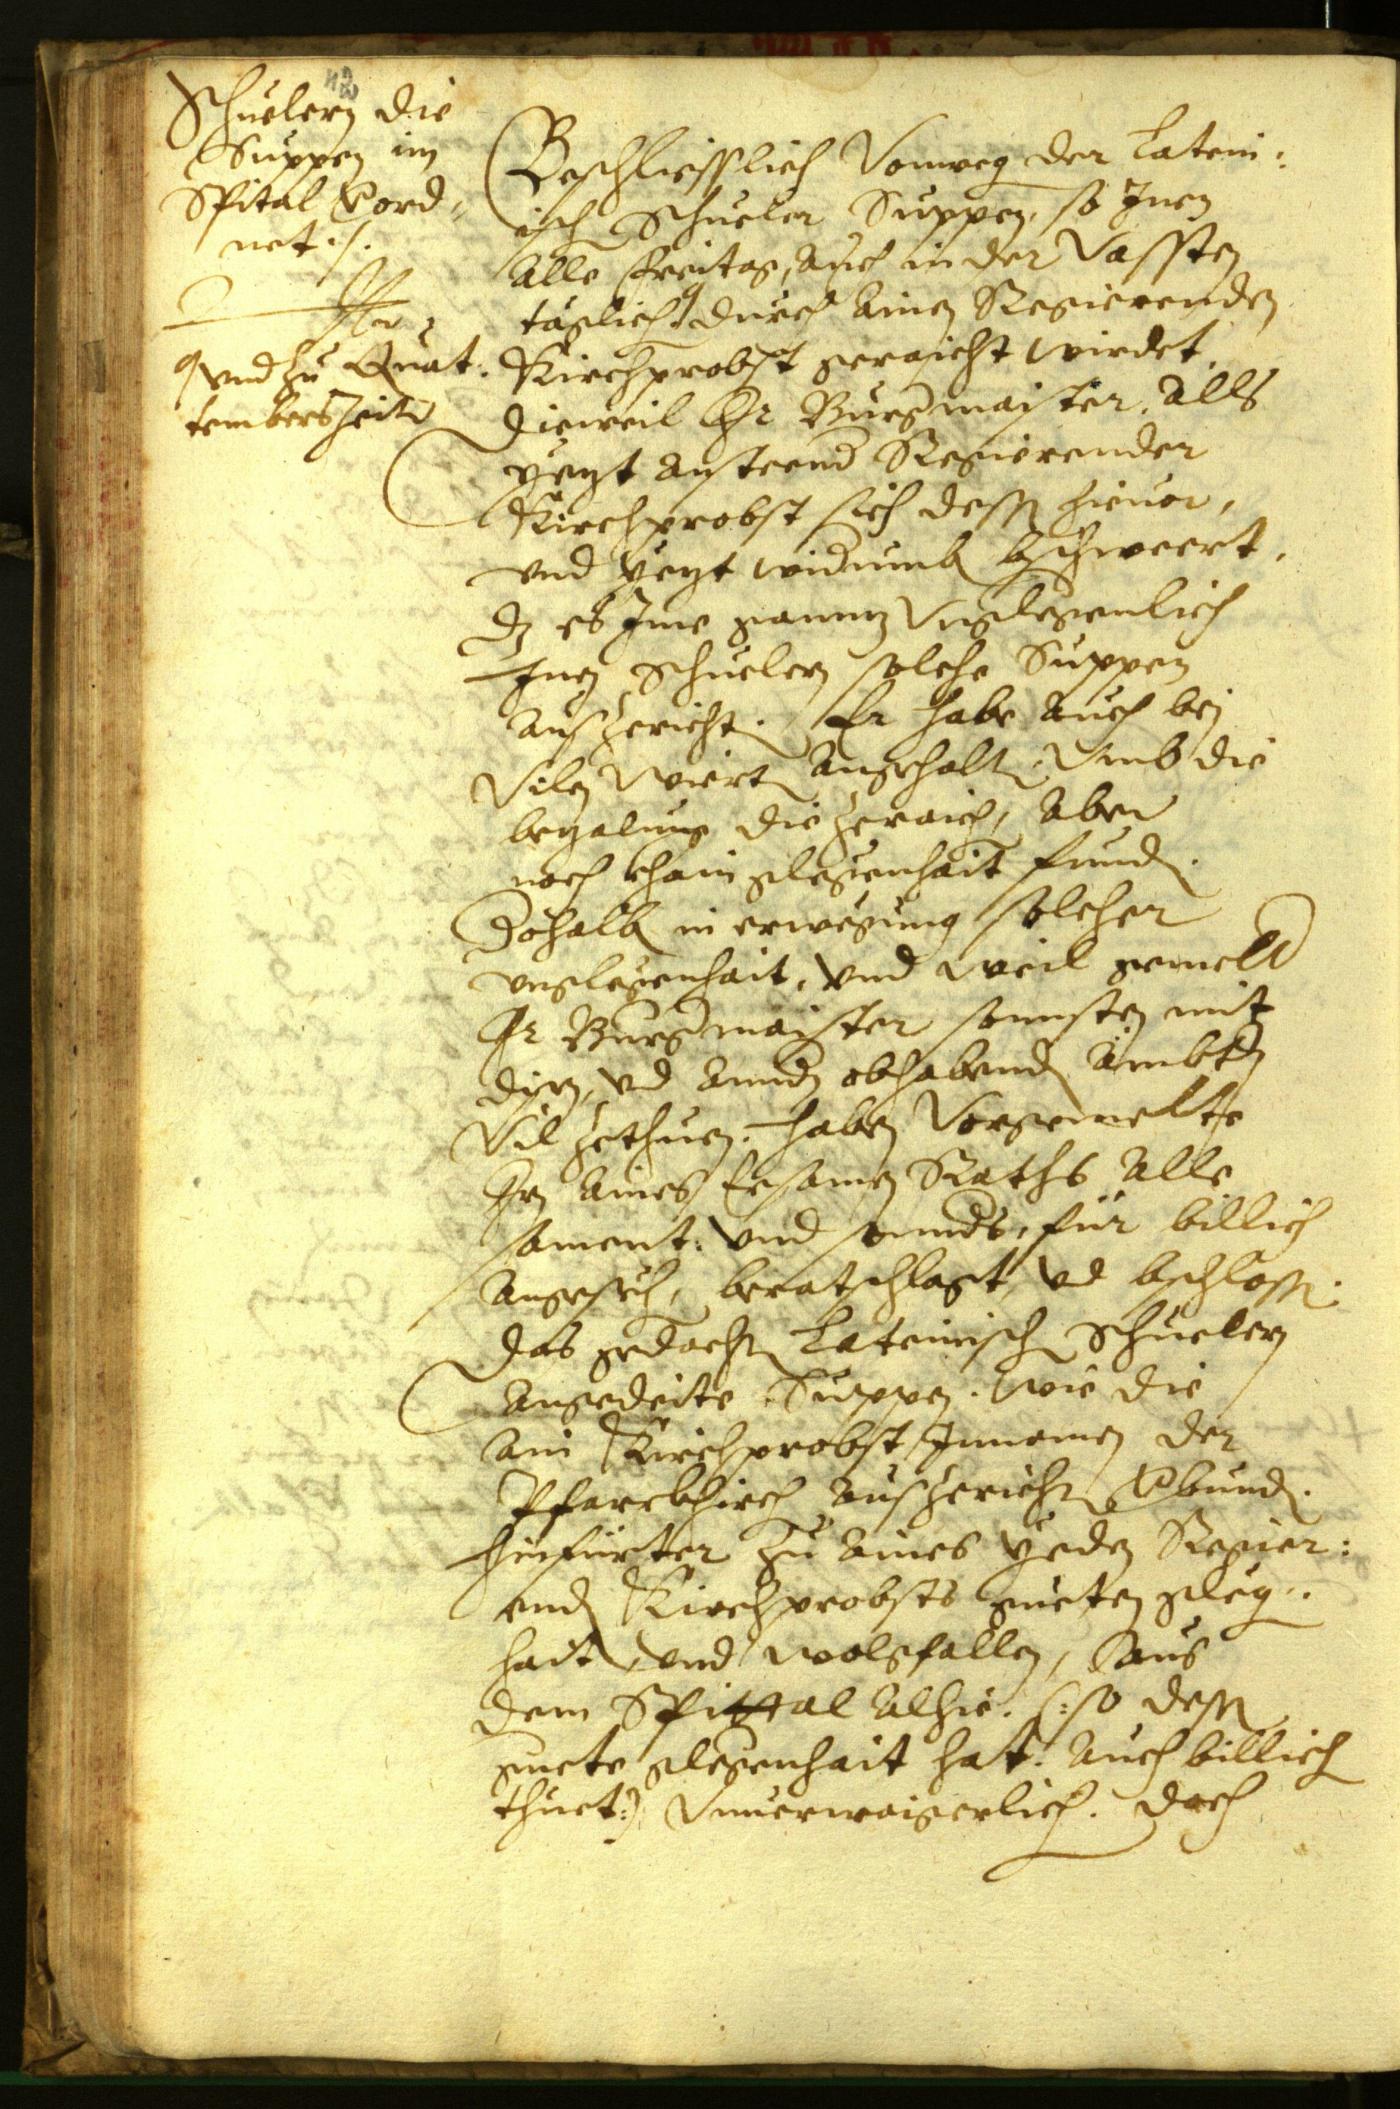 Schuelern die
Suppen im
Spital verord„
net ./.
vnd zu Quat:
tembers Zeitn
Beschliesslich Vonweg der Latein:
isch Schueler Suppen, so Inen
alle Freitag, auch in der Vassten
täglich durch ainen Regierenden
Kirchprobst geraicht wirdet,
dieweil Hr Burgmaister, alls
yezt ansteend Regierender
Kirchprobst sich dess hieuor,
vnd yezt widumb bschweert,
dz es Ime gannz Vnglegenlich
Inen Schuelern solche Suppen
auszericht. Er habe auch bej
Vilen Wiert angehalt, Vmb die
bezalung die zeraich, aber
noch khain glegenhait fund.
Dohalb in erwegung solcher
vnglegenhait, vnd weil gemelt
Hr Burgmaister sonnsten mit
disn, vnd anndn obhabend ämbtn
Vil zethuen. haben Vorgemelte
Hrn aines Ersamen Raths alle
sament: vnd sonnds, für billich
angesech, beratschlagt, vnd bschloss.
das gedacht Lateinisch Schuelern
angedeite Suppen. wie die
ain Kirchprobst Innamen der
Pfarrkhirch auszericht verbund.
hinfürter zu aines yeden Regier:
end Kirchprobsts gueten gleg.
hait, vnd wolgfallen, aus
dem Spittal alhie. (: so dess
guete glegenhait hat. auch billich
thuet:) Vnuerwaigerlich. doch